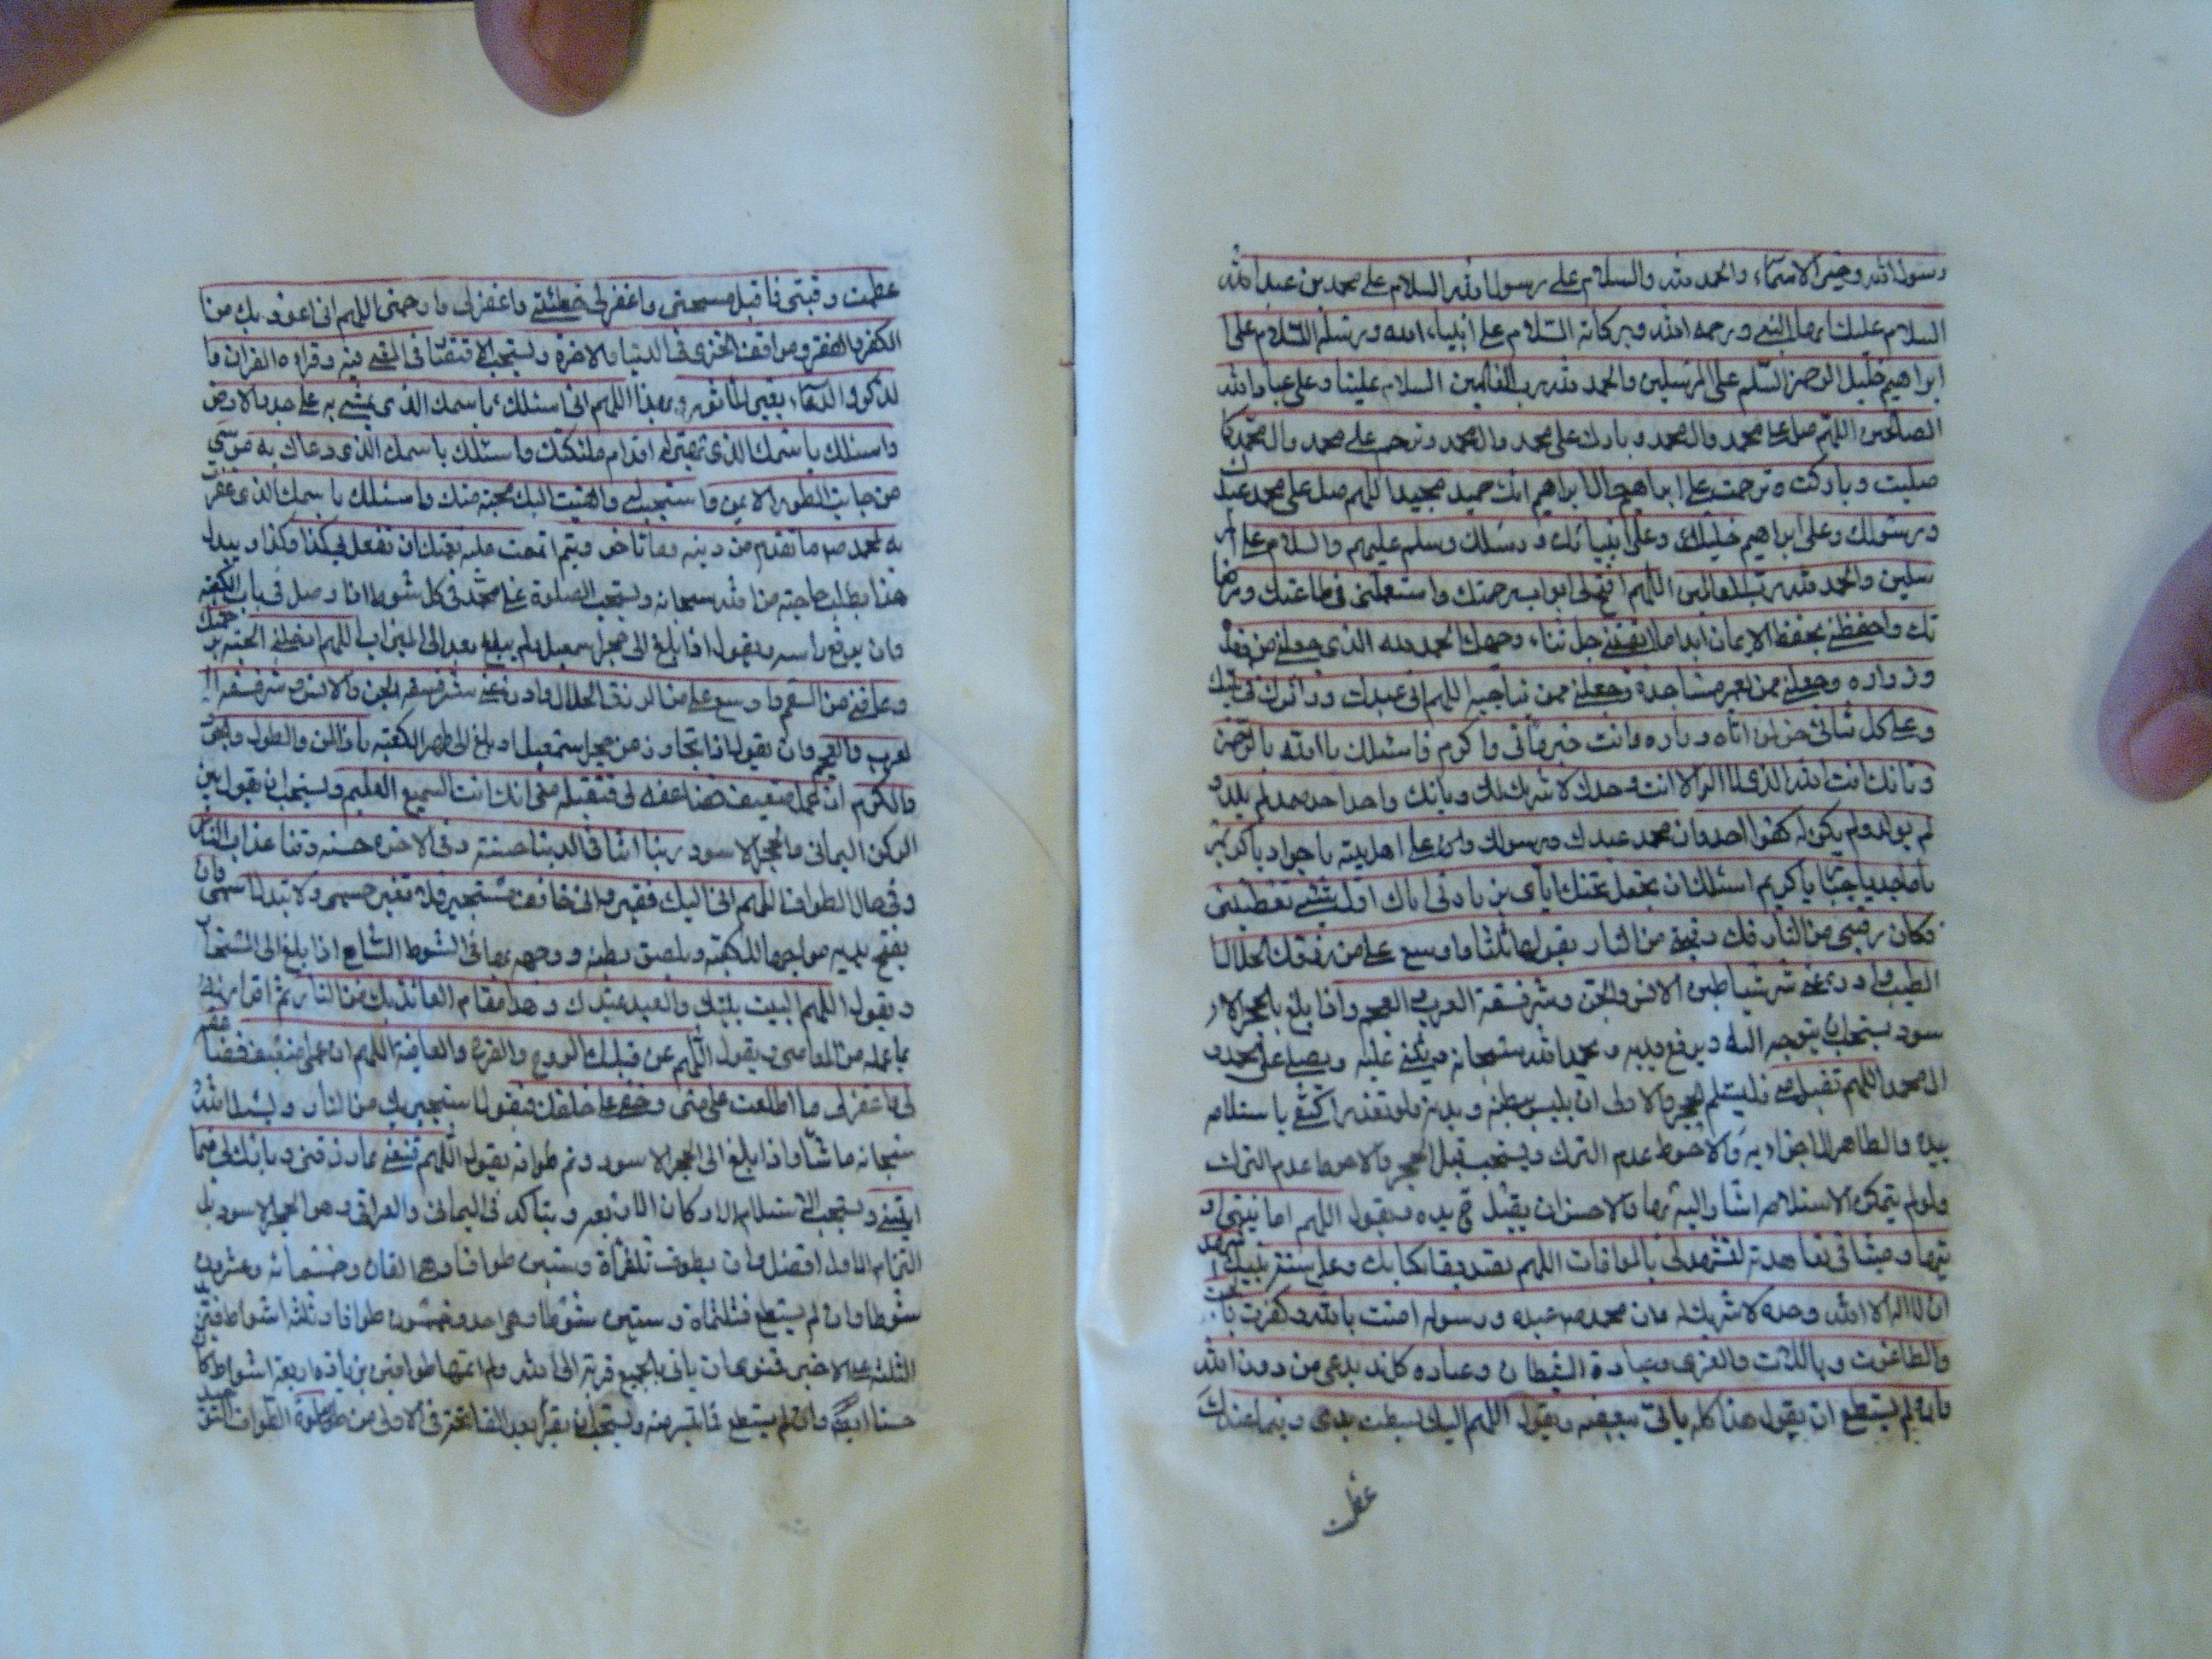 رسول الله وخير الاسماء والحمد لله والسلام على رسول الله السلام على محمد بن عبد الله
السلام عليك ايها النبي ورحمه الله وبركاته السلام على انبياء الله ورسله السلام على
ابراهيم خليل الرحمن السلم على المرسلين والحمد لله رب العالمين السلام علينا وعلى عباد الله
الصالحين اللهم صل على محمد وال محمد وبارك على محمد وال محمد وترحم على محمد وال محمد كما
صليت وباركت وترحمت على ابراهيم وال ابراهيم انك حميد مجيد اللهم صل على محمد عبدك
ورسولك وعلى ابراهيم خليلك وعلى انبيائك ورسلك وسلم عليهم والسلام على المر
سلين والحمد لله رب العالمين اللهم افتح لى ابواب رحمتك واستعملنى فى طاعتك ومرضا
تك واحفظني بحفظ الايمان ابدا ما ابقيتني جل ثناء وجهك الحمد لله الذى جعلني من وفده
وزواره وجعلني ممن يعمر مساجده وجعلني ممن يناجيه اللهم انى عبدك وزائرك فى بيتك
وعلى كل ماتى حق لمن اتاه وزاره وانت خير ماتى واكرم مزور فاسئلك يا الله يا رحمن
وبانك انت الله الذى لا اله الا انت وحدك لا شريك لك وبانك واحد احد صمد لم يلد و
لم يولد ولم يكن له كفوا احد وان محمد عبدك ورسولك وعلى اهل بيته يا جواد يا كريم
يا ماجد يا جبار يا كريم اسئلك ان تجعل تحفتك اياى بزيارتى اياك اول شيء تعطيني
فكاك رقبتى من النار فك رقبتي من النار يقولها ثلثا واوسع على من رزقك الحلال
الطيب وادرء عني شر شياطين الانس والجن وشر فسقة العرب والعجم واذا بلغ بالحجر الا
سود يستحب ان يتوجه اليه ويرفع يديه ويحمد الله سبحانه ويثني عليه ويصلي على محمد و
ال محمد اللهم تقبل مني فليستلم الحجر والاولى ان يلمس ببطنه وبدنه ولو تعذر اكتفى باستلامه
بيده والظاهر اجزاء به والاحوط عدم الترك ويستحب تقبيل الحجر والاحوط عدم الترك
ولو لم يتمكن الاستلام اشار اليه بها والاحسن ان يقبل ح يده ويقول اللهم امانتى اد
يتها وميثاقى تعاهدته لتشهد لى بالموافات اللهم تصديقا بكتابك وعلى سنة نبيك اشهد
ان لا اله الا الله وحده لا شريك له وان محمد عبده ورسوله امنت بالله وكفرت بالجبت
والطاغوت وباللات والعزى وعبادة الشيطان وعباده كل ند يدعى من دون الله
وان لم يستطع ان يقول هذا كله ياتى ببعضه ويقول اللهم اليك بسطت يدى وفيما عندك
عظمت
عظمت رغبتى فاقبل مسحتى واغفر لى خطيئتي واغفر لى وارحمنى اللهم انى اعوذ بك من
الكفر والفقر ومواقف الخزى فى الدنيا والاخرة ويستحب وقراءه القران وا
لذكر والدعاء بغير الماثور وبهذا اللهم انى اسئلك باسمك الذى يمشي به على جدد الارض
واسئلك باسمك الذى تهتز له اقدام ملئكتك واسئلك باسمك الذى دعاك به موسي
من جانب الطور الايمن واستجبت له والقيت اليه محبة منك واسئلك باسمك الذى غفرت
به لمحمد ما تقدم من ذنبه وما تاخر ويتم اتممت عليه نعمتك ان تفعل بي كذا وكذا وبدل
هذا يطلب حاجته من الله سبحانه ويستحب الصلوة على محمد فى كل شوط اذا وصل فى باب الكعبه
وان يرفع راسه ويقول اذا بلغ الى حجر اسمعيل ولم يبلغ بعد الى الميزاب اللهم ادخلني الجنة برحمتك
وعافني من السقم واوسع على من الرزق الحلال وادرء عني شر فسقه الجن والانس وشر فسقه ا
لعرب والعجم وان يقول اذا تجاوز من حجر اسمعيل وبلغ الى ظهر الكعبه يا ذا المن والطول والجود
والكرم ان عملى ضعيف فضاعفه لى فتقبله منى انك انت السميع العليم ويستحب ان يقول بين
الركن اليمانى والحجر الاسود ربنا اتنا فى الدنيا حسنة وفى الاخره حسنه وقنا عذاب النار
وفى حال الطواف اللهم انى اليك فقير وانى خائف مستجير فلا تغير جسمى ولا تبدل اسمى وان
يفتح يديه مواجها للكعبه ويلصق بطنه ووجهه بها فى الشوط السابع اذا بلغ الى المستجار
ويقول اللهم البيت بيتك والعبد عبدك وهذا مقام العائذ بك من النار ثم اقر لربه
بما عمله من المعاصى ويقول اللهم من قبلك الروح والفرج والعافيه اللهم ان عملى ضعيف فضاعفه
لى واغفر لى ما اطلعت عليه منى وخفى على خلقك فيقول استجير بك من النار ويسئل الله
سبحانه ما شاء واذا بلغ الى الحجر الاسود وتم طوافه يقول اللهم قنعني بما رزقتنى وبارك لى فيما
اتيتني ويستحب استلام الاركان الاربعه ويتاكد فى اليمانى والعراقى وهو الحجر الاسود بل
التزام الاول افضل وان يطوف ثلثمأة وستين طوافا وهى الفان وخمسمائه وعشرون
شوطا وان لم يستطع فثلثمأة وستين شوطا وهى احد وخمسون طوافا وثلثة اشواط
الثلثه على الاخير فينوى ان ياتى بالجميع قربة الى الله ولو اتمها طوافين بزياده اربعه اشواط كان
حسنا ايضا وان لم يستطع فما تيسر منه ويستحب ان يقرأ بعد الفاتحه فى الاولى من صلوة الطواف التوحيد